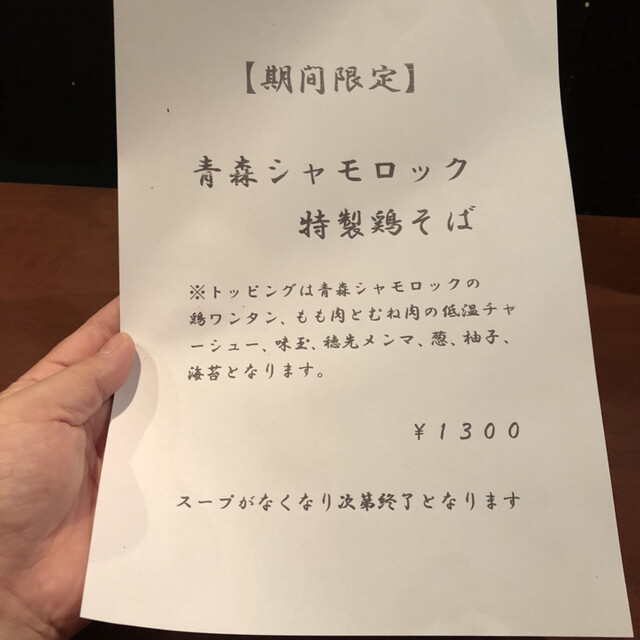 【期间限定】
青森シャモロック
特製鶏そば
※トッピングは青森シャモロックの
鶏ワンタン、もも肉とむね肉の低温チャ
ーシュー、味玉、穂先メンマ、葱、柚子、
海苔となります。
￥1300
スープがなくなり次第終了となります